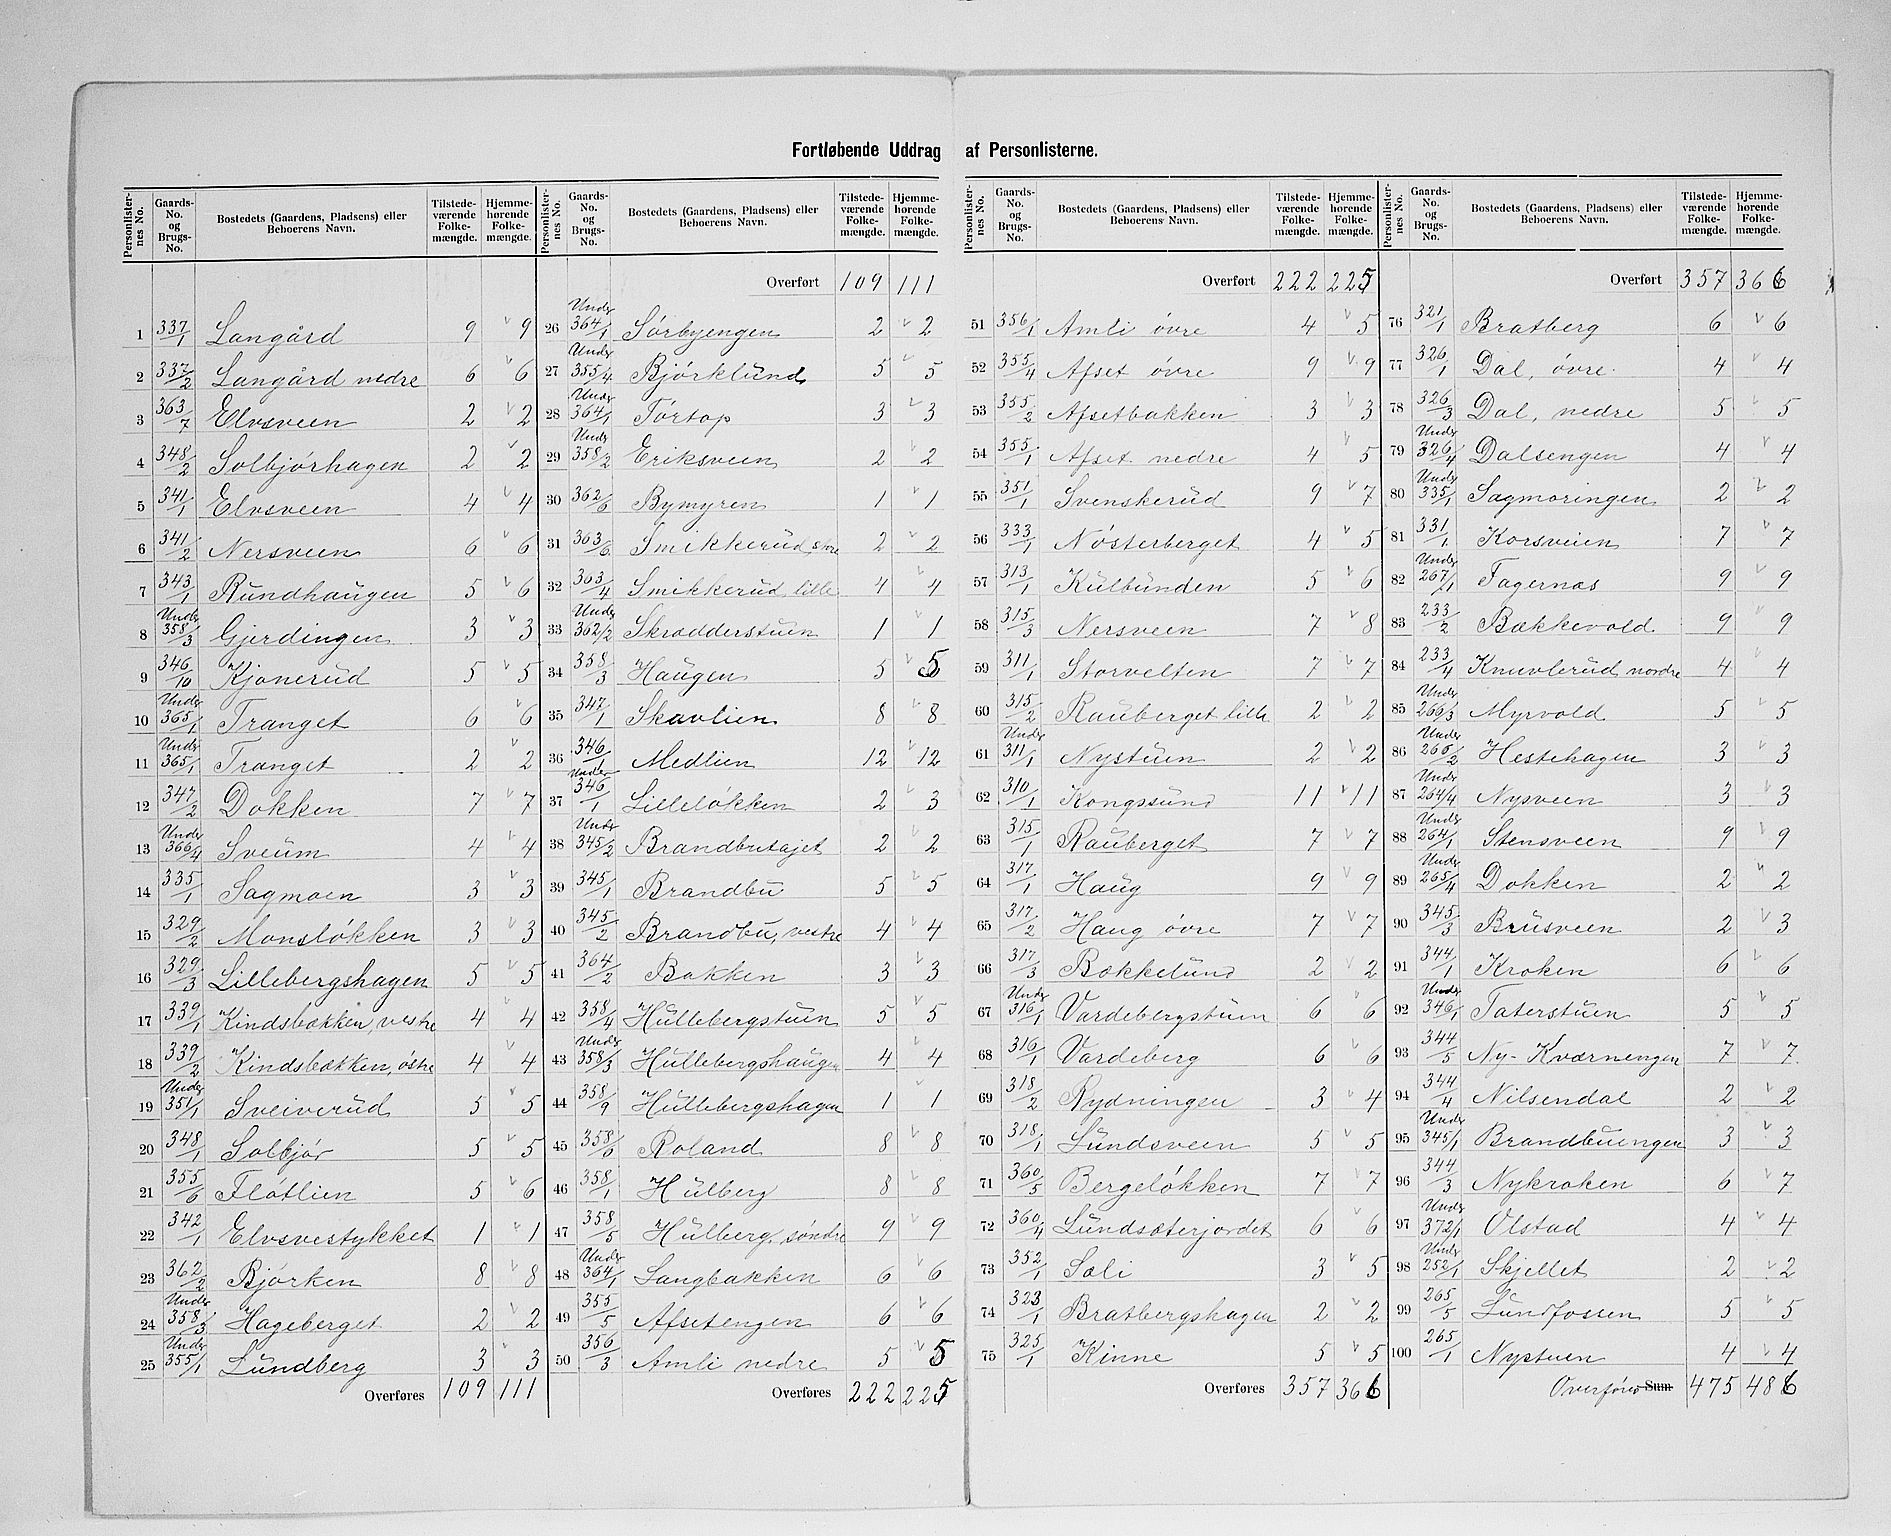 Fortløbende Uddrag af Personlisterne.
Personlisternes No. | Gaards-No. og Brugs-No. | Bostedets (Gaardens, Pladsens) eller Beboerens Navn. | Tilstedeværende Folkemængde. | Hjemmehørende Folkemængde.
1 337/1 Langård 9 9
2 337/2 Langård nedre 6 6
3 363/7 Elvsveen 2 2
4 348/2 Solbjørhagen 2 2
5 341/1 Elvsveen 4 4
6 341/2 Nersveen 6 6
7 343/1 Rundhaugen 5 6
8 Under 358/3 Gjerdingen 3 3
9 346/10 Kjonerud 5 5
10 Under 365/1 Tranget 6 6
11 Under 365/1 Tranget 2 2
12 347/2 Dokken 7 7
13 Under 366/4 Sveum 4 4
14 335/1 Sagmoen 3 3
15 329/2 Monsløkken 3 3
16 329/3 Lillebergshagen 5 5
17 339/1 Kindsbækken, vestre 4 4
18 339/2 Kindsbækken, østre 4 4
19 Under 351/1 Sveiverud 5 5
20 348/1 Solbjør 5 5
21 355/6 Fløtlien 5 6
22 342/1 Elvsvestykket 1 1
23 362/2 Bjørken 8 8
24 Under 358/3 Hageberget 2 2
25 Under 355/1 Lundberg 3 3
Overføres 109 111
Personlisternes No. | Gaards-No. og Brugs-No. | Bostedets (Gaardens, Pladsens) eller Beboerens Navn. | Tilstedeværende Folkemængde. | Hjemmehørende Folkemængde.
Overført 109 111
26 Under 364/1 Sørbyengen 2 2
27 Under 355/4 Bjørklund 5 5
28 Under 364/1 Tørtop 3 3
29 Under 358/2 Eriksveen 2 2
30 362/6 Bymyren 1 1
31 363/6 Smikkerud, store 2 2
32 363/4 Smikkerud, lille 4 4
33 Under 362/2 Skrædderstuen 1 1
34 358/3 Haugen 5 5
35 347/1 Skavlien 8 8
36 346/1 Medlien 12 12
37 Under 346/1 Lilleløkken 2 3
38 Under 345/2 Brandbutajet 2 2
39 345/1 Brandbu 5 5
40 345/2 Brandbu, vestre 4 4
41 364/2 Bakken 3 3
42 358/4 Hullebergstuen 5 5
43 Under 358/3 Hullebergshaugen 4 4
44 358/9 Hullebergshagen 1 1
45 358/6 Roland 8 8
46 358/1 Hulberg 8 8
47 358/5 Hulberg, søndre 9 9
48 Under 364/1 Langbakken 6 6
49 355/5 Afsetengen 6 6
50 356/3 Amli nedre 5 5
Overføres 222 225
Personlisternes No. | Gaards-No. og Brugs-No. | Bostedets (Gaardens, Pladsens) eller Beboerens Navn. | Tilstedeværende Folkemængde. | Hjemmehørende Folkemængde.
Overført 222 225
51 356/1 Amli øvre 4 5
52 355/4 Afset øvre 9 9
53 355/2 Afsetbakken 3 3
54 355/1 Afset nedre 4 5
55 351/1 Svenskerud 9 7
56 333/1 Nøsterberget 4 5
57 313/1 Kulbunden 5 6
58 315/3 Nersveen 7 8
59 311/1 Storvelten 7 7
60 315/2 Rauberget lille 2 2
61 Under 311/1 Nystuen 2 2
62 310/1 Kongssund 11 11
63 315/1 Rauberget 7 7
64 317/1 Haug 9 9
65 317/2 Haug øvre 7 7
66 317/3 Bækkelund 2 2
67 Under 316/1 Vardebergstuen 6 6
68 316/1 Vardeberg 6 6
69 318/2 Rydningen 3 4
70 318/1 Lundsveen 5 5
71 360/5 Bergeløkken 7 7
72 360/4 Lundsæterjordet 6 6
73 352/1 Sæli 3 5
74 323/1 Bratbergshagen 2 2
75 325/1 Kinne 5 5
Overføres 357 366
Personlisternes No. | Gaards-No. og Brugs-No. | Bostedets (Gaardens, Pladsens) eller Beboerens Navn. | Tilstedeværende Folkemængde. | Hjemmehørende Folkemængde.
Overført 357 366
76 321/1 Bratberg 6 6
77 326/1 Dal, øvre. 4 4
78 326/3 Dal, nedre 5 5
79 Under 326/4 Dalsengen 4 4
80 Under 335/1 Sagmoringen 2 2
81 331/1 Korsveien 7 7
82 Under 267/1 Fagernæs 9 9
83 233/2 Bækkevold 9 9
84 233/4 Knuvlerud nordre 4 4
85 Under 266/3 Myrvold 5 5
86 Under 265/2 Hestehagen 3 3
87 Under 264/4 Nysveen 3 3
88 Under 264/1 Stensveen 9 9
89 Under 265/4 Dokken 2 2
90 345/3 Brusveen 2 3
91 344/1 Kroken 6 6
92 Under 346/1 Taterstuen 5 5
93 344/5 Ny-Kværnengen 7 7
94 344/4 Nilsendal 2 2
95 Under 345/1 Brandbuengen 3 3
96 344/3 Nykroken 6 7
97 Under 372/1 Olstad 4 4
98 Under 252/1 Skjellet 2 2
99 265/5 Lundfossen 5 5
100 265/1 Nystuen 4 4
Overføres Sum 475 486